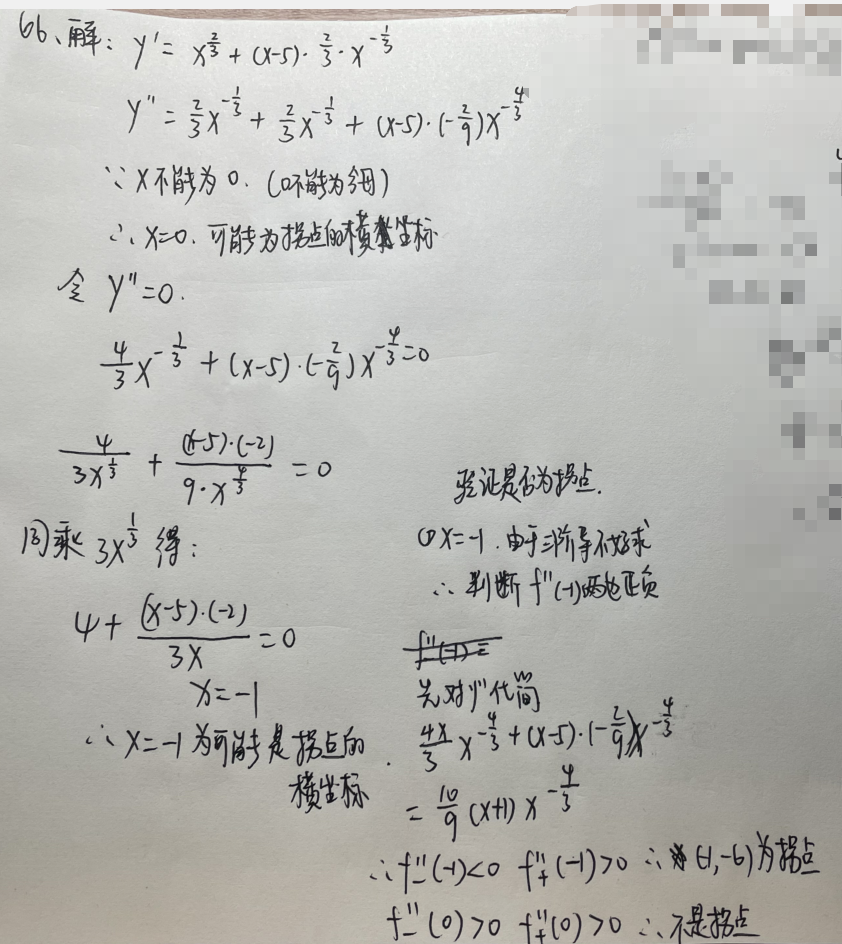 66、解: y' = x^{2/3} + (x-5)·2/3·x^{-1/3}
y'' = 2/3 x^{-1/3} + 2/3 x^{-1/3} + (x-5)·(-2/9)x^{-4/3}
∵ x不能为0. (0不能为分母)
∴ x=0. 可能为拐点的横坐标
令 y''=0.
4/3 x^{-1/3} + (x-5)·(-2/9)x^{-4/3}=0
4/(3x^{1/3}) + (x-5)·(-2)/(9·x^{4/3}) = 0
同乘 3x^{1/3} 得:
4 + (x-5)·(-2)/(3x) = 0
x=-1
∴ x=-1 为可能是拐点的
横坐标
验证是否为拐点.
① x=-1. 由于三阶导不好求
∴ 判断 f''(-1)两边正负
f''_-(-1) =
先对y''化简
4x/3 x^{-4/3} + (x-5)·(-2/9)x^{-4/3}
= 10/9 (x+1) x^{-4/3}
∴ f''_-(-1)<0 f''_+(-1)>0 ∴ (-1,-6)为拐点
f''_-(0)>0 f''_+(0)>0 ∴ 不是拐点